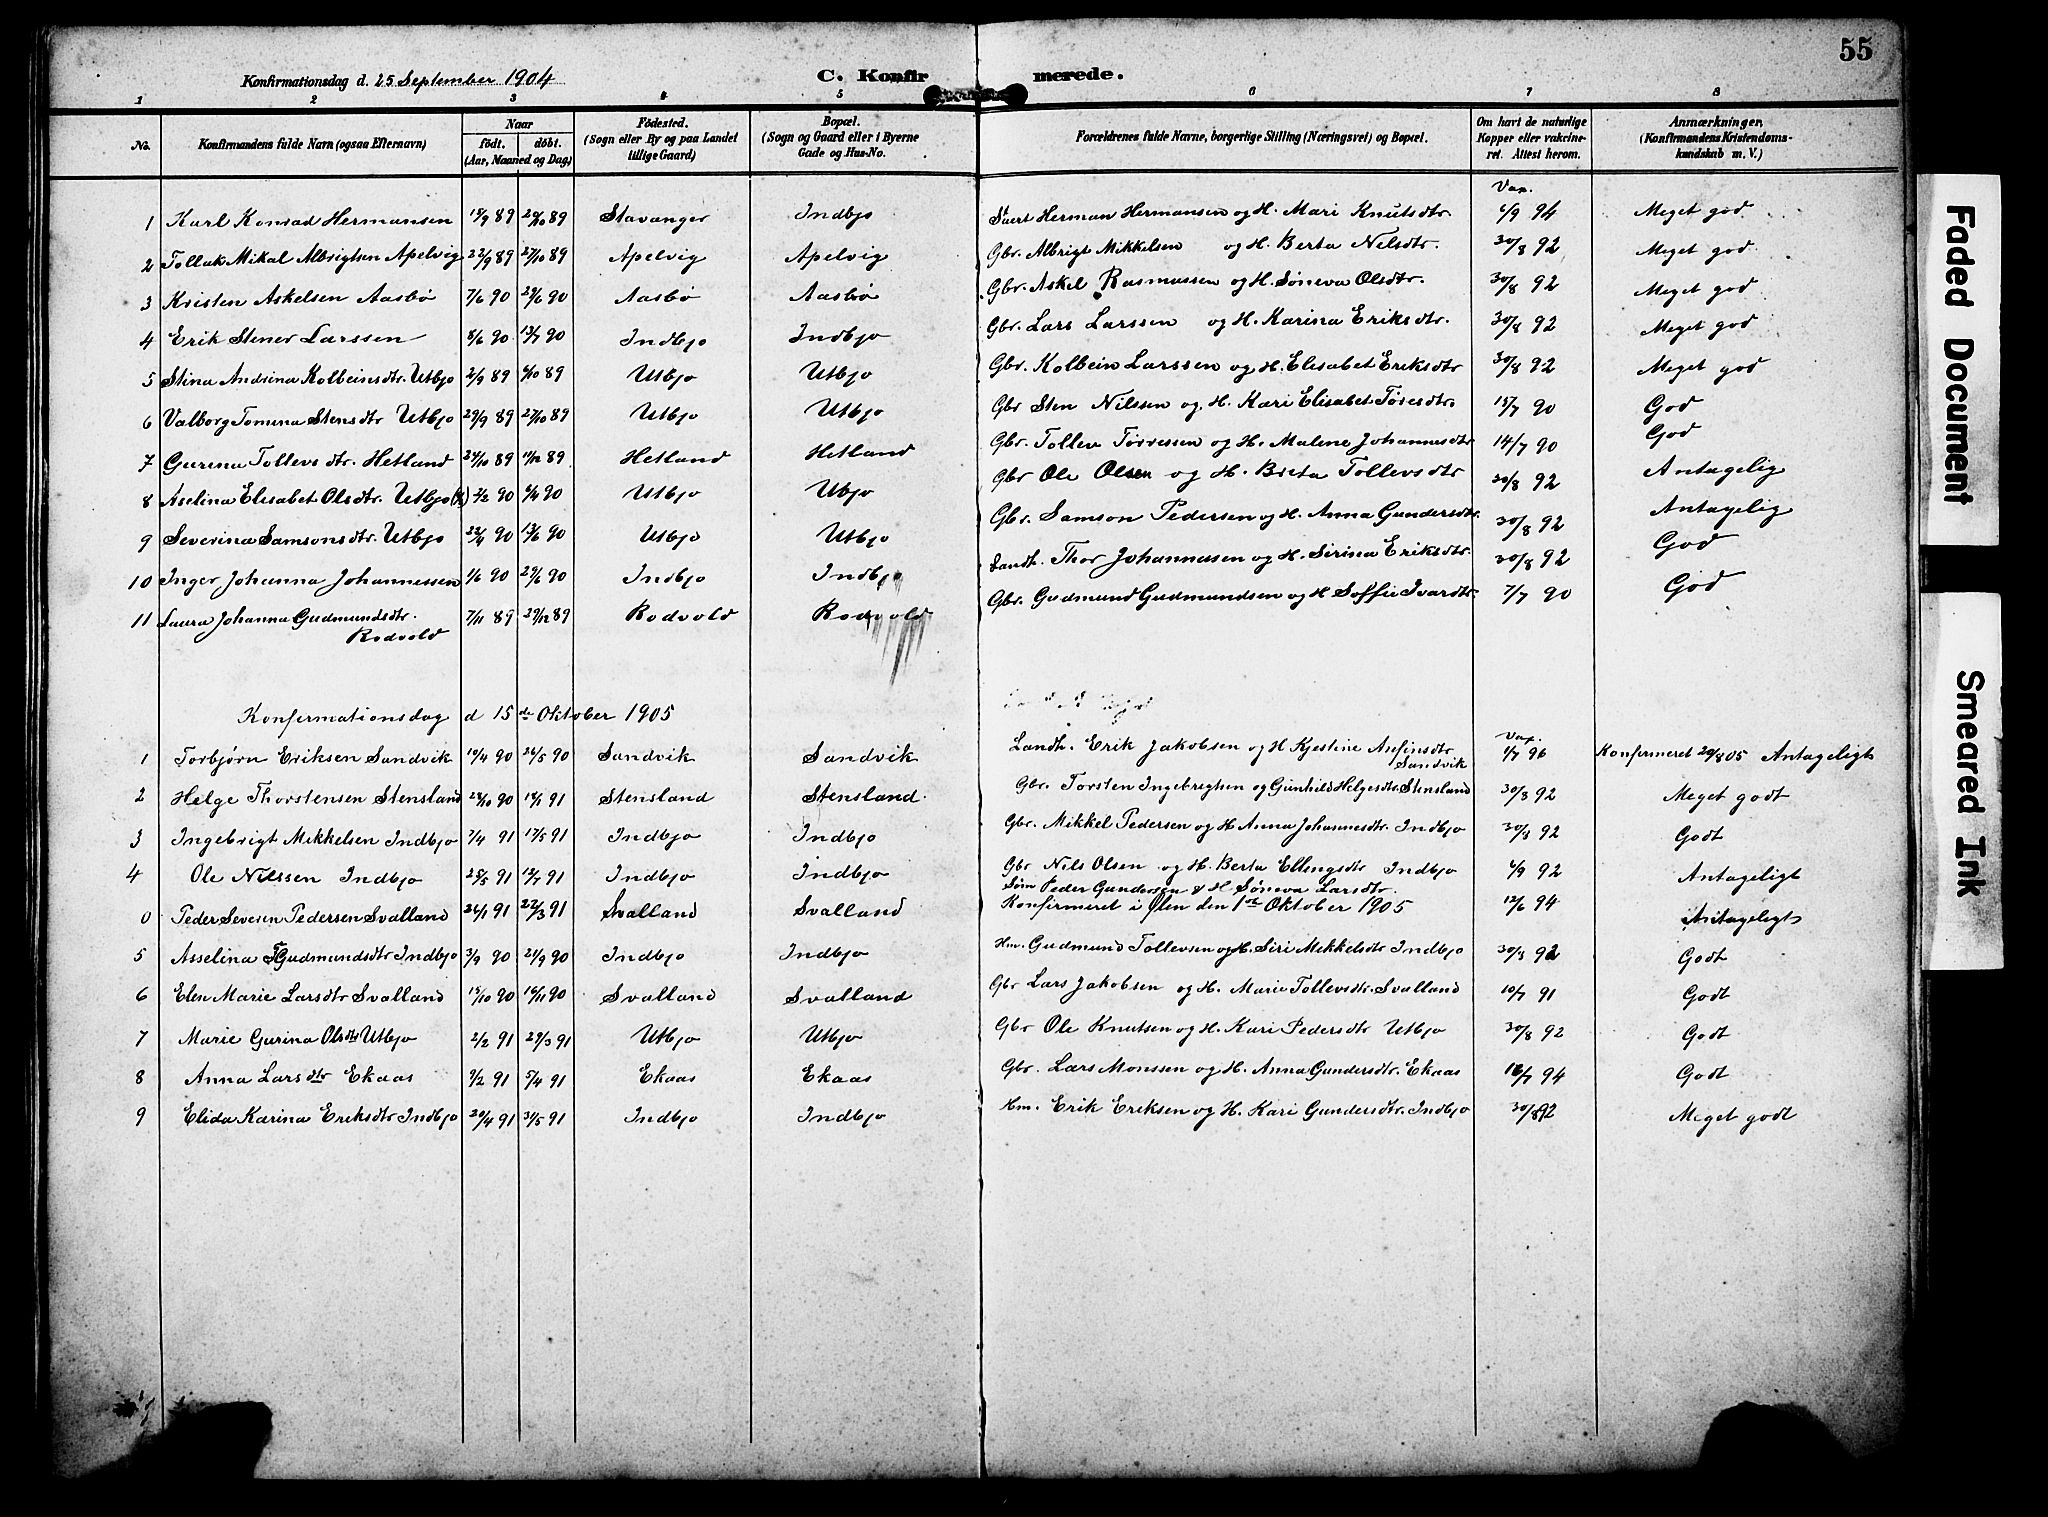 55
Konfirmationsdag d. 25 September 1904
C. Konfirmerede.
1 2 3 4 5 6 7 8
No. Konfirmandens fulde Navn (ogsaa Efternavn) Naar födt. döbt. (Aar, Maaned og Dag) Födested. (Sogn eller By og paa Landet tillige Gaard) Bopæl. (Sogn og Gaard eller i Byerne Gade og Hus-No. Forældrenes fulde Navne, borgerlige Stilling (Næringsvei) og Bopæl. Om havt de naturlige Kopper eller vakcineret. Attest herom. Anmærkninger, (Konfirmandens Kristendomskundskab m. V.)
Vax.
1 Karl Konrad Hermansen 89 89 Stavanger Indbjo Herman Hermansen og H. Mari Knutsdtr 6/9 94 Meget god
2 Tollak Mikal Albrigtsen Apelvig 22/9 89 27/10 89 Apelvig Apelvig Gbr. Albrigt Mikkelsen og H. Berta Nelsdtr. 30/8 92 Meget god
3 Kristen Askelsen Aasbø 7/6 90 29/6 90 Aasbø Aasbø Gbr. Askel Rasmussen og H. Søneva Olsdtr. 30/8 92 Meget god
4 Erik Stener Larssen 8/6 90 13/7 90 Indbjo Indbjo Gbr. Lars Larssen og H. Karina Eriksdtr. 30/8 92 Meget god
5 Stina Andrina Kolbeinsdtr. Utbjo 2/9 89 6/10 89 Utbjo Utbjo Gbr. Kolbein Larssen og H. Elisabet Eriksdtr 30/8 92 Meget god
6 Valborg Tomina Stensdtr Utbjo 29/9 89 27/10 89 Utbjo Utbjo Gbr Sten Nilssen og H. Kari Elisabet Tøresdtr. 15/7 90 God
7 Gurina Tollevsdtr. Hetland 89 89 Hetland Hetland Gbr. Tollev Tørressen og H. Malene Johannesdtr 14/7 90 God
8 Aselina Elisabet Olsdtr. Utbjo 2/2 90 6/4 90 Utbjo Ubjo Gbr Ole Olsen og H. Brita Tollevsdtr 30/8 92 Antagelig
9 Severina Samsonsdtr. Utbjo 22/4 90 90 Utbjo Utbjo Gbr. Samson Pedersen og H. Anna Gundersdtr. 30/8 92 Antagelig
10 Inger Johanna Johannessen 1/6 90 29/6 90 Indbjo Indbjo Landh. Thor Johannesen og H. Sirina Eriksdtr. 30/8 92 God
11 Laura Johanna Gudmundsdtr. 7/11 89 29/12 89 Rodvold Rodvold Gbr. Gudmund Gudmundsen og H Soffie Ivarsdtr. 7/7 90 God
Rodvold
Konfirmationsdag d 15de Oktober 1905
Vax.
1 Torbjørn Eriksen Sandvik 10/4 90 26/5 90 Sandvik Sandvik Landh. Erik Jakobsen og H Kjestine Anfinsdtr 1/7 96 Konfirmeret 20/8 05 Antageligt
Sandvik
2 Helge Thorstensen Stensland 90 91 Stensland Stensland. Gbr. Torsten Ingebrigtsen og Gunhild Helgesdtr. Stensland 30/8 92 Meget godt
3 Ingebrigt Mikkelsen Indbjo 7/4 91 17/5 91 Indbjo Indbjo Gbr. Mikkel Pedersen og H Anna Johannesdtr. Indbjo 30/8 92 Godt
4 Ole Nilssen Indbjo 25/5 91 12/7 91 Indbjo Indbjo Gbr Nils Olsen og H. Berta Ellingsdtr Indbjo 6/9 92 Antageligt
Søm Peder Gundersen & H Søneva Larsdtr.
0 Peder Severin Pedersen Svalland 26/1 91 22/3 91 Svalland Svalland Konfirmeret i Ølen den 1ste Oktober 1905 12/6 94 Antageligt
5 Asselina Gudmundsdtr Indbjo 3/9 90 21/9 90 Indbjo Indbjo Hm. Gudmund Tollevsen og H. Siri Mikkelsdtr Indbjo 30/8 92 Godt
6 Elen Marie Larsdtr Svalland 15/10 90 16/11 90 Svalland Svalland Gbr Lars Jakobsen og H. Marie Tollevsdtr. Svalland 10/7 91 Godt
7 Marie Gurina Olsdtr Utbjo 2/2 91 29/3 91 Utbjo Utbjo Gbr Ole Knutsen og H. Kari Pedersdtr Utbjo 30/8 92 Godt
8 Anna Larsdtr Ekaas 91 5/4 91 Ekaas Ekaas Gbr. Lars Monssen og H. Anna Gundersdtr. Ekaas 94 Godt
9 Elida Karina Eriksdtr Indbjo 20/4 91 31/5 91 Indbjo Indbjo Hm. Erik Eriksen og H. Kari Gundersdtr. Indbjo 30/8 92 Meget godt
Faded Document
Smeared Ink